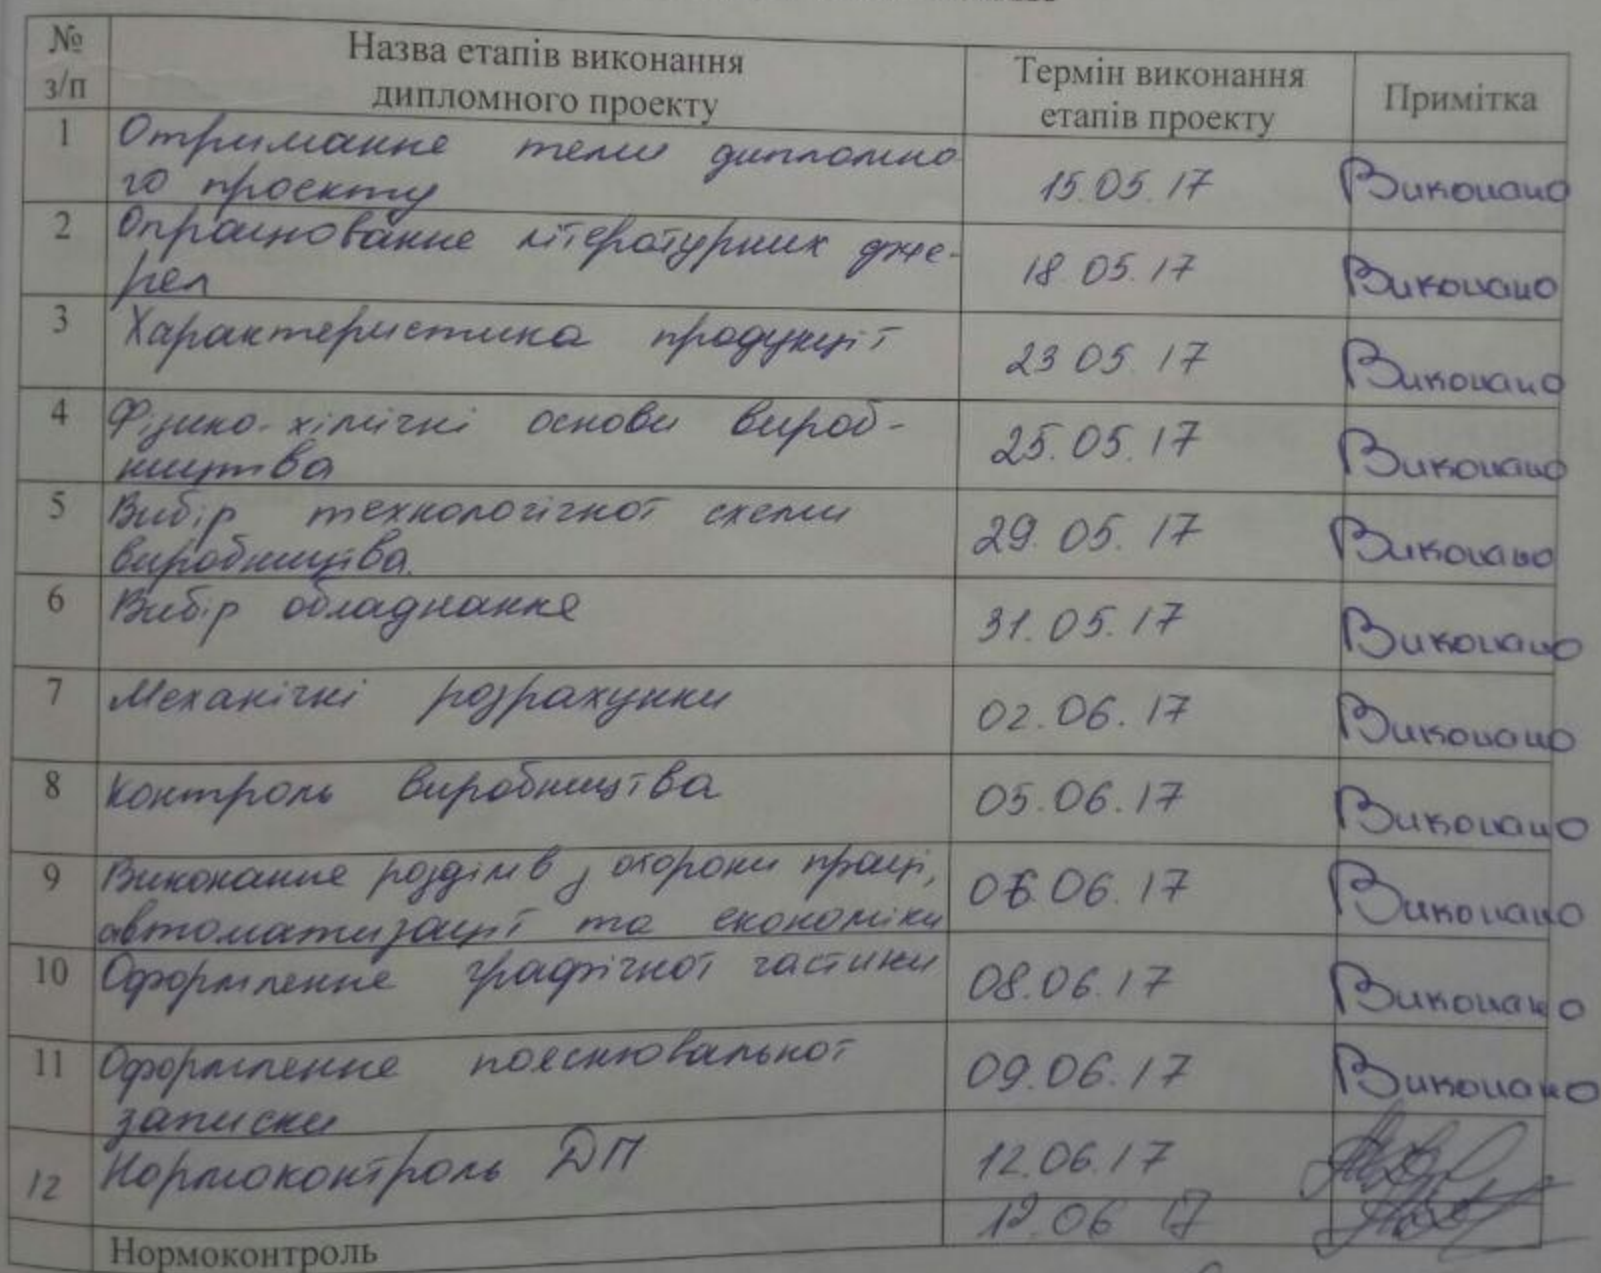 № з/п
Назва етапів виконання
дипломного проекту
Термін виконання
етапів проекту
Примітка
1
Отримання теми дипломно
го проекту
15.05.17
Виконано
2
Опрацювання літературних дже-
рел
18.05.17
Виконано
3
Характеристика продукції
23 05.17
Виконано
4
Фізико-хімічні основи вироб-
ництва
25.05.17
Виконано
5
Вибір технологічної схеми
виробництва.
29.05.17
Виконано
6
Вибір обладнання
31.05.17
Виконано
7
Механічні розрахунки
02.06.17
Виконано
8
Контроль виробництва
05.06.17
Виконано
9
Виконання розділів з охорони праці,
автоматизації та економіки
06.06.17
Виконано
10
Оформлення графічної частини
08.06.17
Виконано
11
Оформлення пояснювальної
записки
09.06.17
Виконано
12
Нормоконтроль ДП
12.06.17
Нормоконтроль
12.06 17